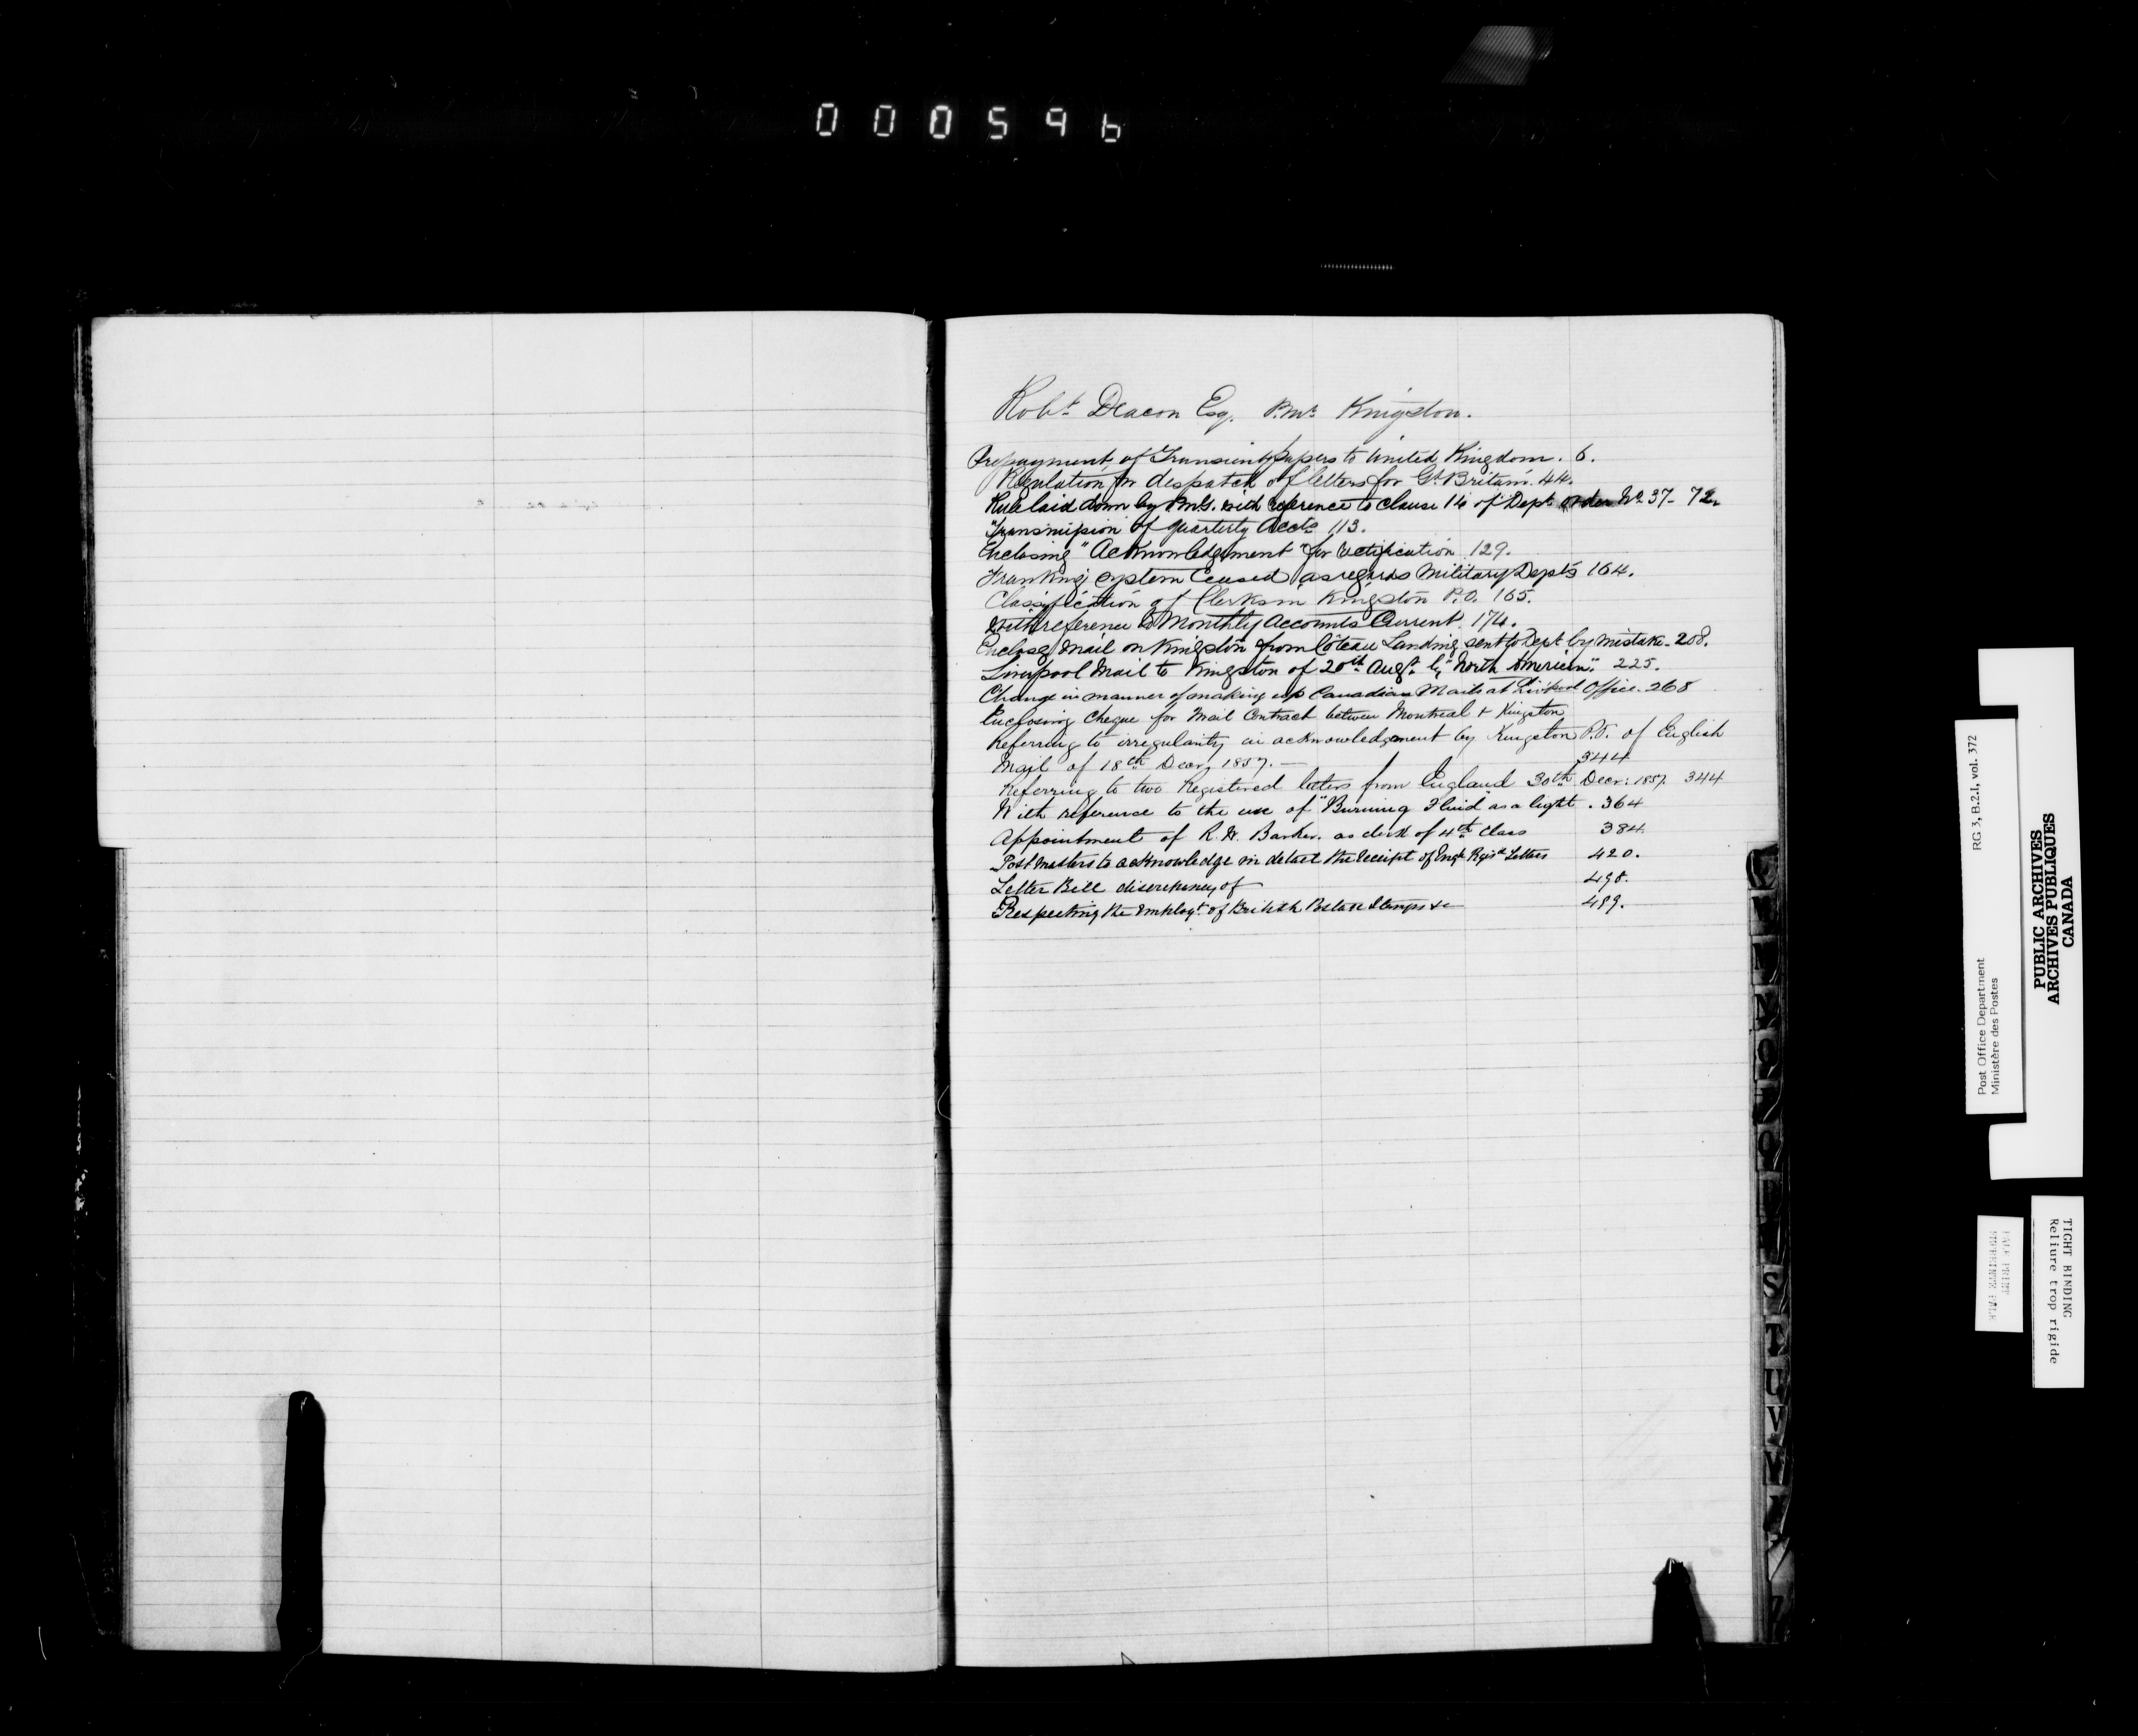 000596
Robt Deacon Esq. P.Mr Kingston.
Prepayment of Transient papers to United Kingdom. 6.
Regulation for despatch of letters for Gt Britain. 44.
Rule laid down by P.M.G. with reference to Clause 14 of Dept order No 37 - 72.
Transmission of quarterly Accts 113.
Enclosing "Acknowledgement" for rectification 129.
Franking system Ceased as regards Military Dept's 164.
Classification of Clerks in Kingston P.O. 165.
With reference to Monthly Accounts Current. 174.
Enclosg Mail on Kingston from Côteau Landing sent to Dept by mistake - 208.
Liverpool Mail to Kingston of 20th Augt by "North American". 225.
Change in manner of making up Canadian Mails at Office. 268
Enclosing Cheque for Mail Contract between Montreal & Kingston
Referring to irregularity in acknowledgment by Kingston P.O. of English
Mail of 18th Decr, 1857. — 344
Referring to two Registered letters from England 30th Decr: 1857. 344
With reference to the use of "Burning Fluid as a light . 364
Appointment of R.W. Barker. as clerk of 4th Class 384
Post masters to acknowledge in detail the receipt of Engh Regisd Letters 420.
Letter Bill discrepancy of 498.
Respecting the Employt of British Postage Stamps &c 499.
M
N
O
P
Q
S
T
U
V
W
RG 3, B.2.I, vol. 372
Post Office Department
Ministère des Postes
PUBLIC ARCHIVES
ARCHIVES PUBLIQUES
CANADA
TIGHT BINDING
Reliure trop rigide